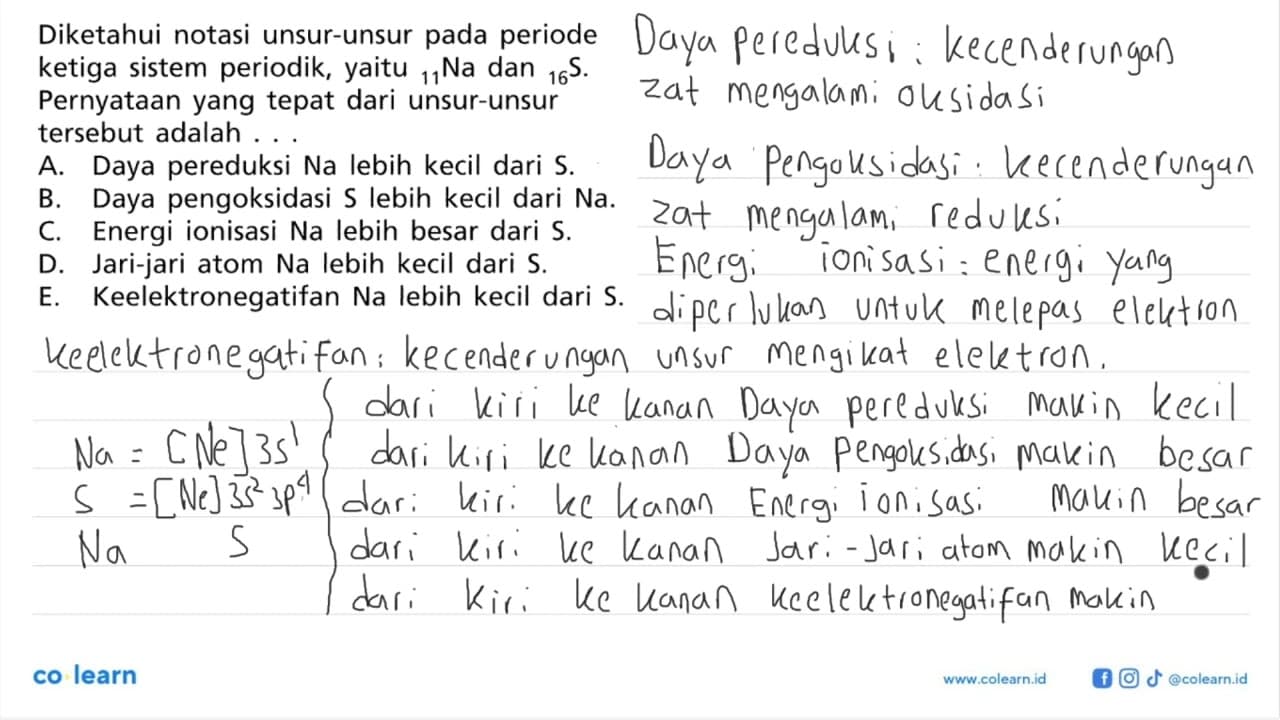 Diketahui notasi unsur-unsur pada periode
ketiga sistem periodik, yaitu ₁₁Na dan ₁₆S.
Pernyataan yang tepat dari unsur-unsur
tersebut adalah . . .
A. Daya pereduksi Na lebih kecil dari S.
B. Daya pengoksidasi S lebih kecil dari Na.
C. Energi ionisasi Na lebih besar dari S.
D. Jari-jari atom Na lebih kecil dari S.
E. Keelektronegatifan Na lebih kecil dari S.
Daya pereduksi : kecenderungan
zat mengalami oksidasi
Daya Pengoksidasi : kecenderungan
zat mengalami reduksi
Energi ionisasi : energi yang
diperlukan untuk melepas elektron
keelektronegatifan : kecenderungan unsur mengikat elektron.
Na = [Ne] 3s¹
S = [Ne] 3s² 3p⁴
Na S
dari kiri ke kanan Daya pereduksi makin kecil
dari kiri ke kanan Daya Pengoksidasi makin besar
dari kiri ke kanan Energi ionisasi makin besar
dari kiri ke kanan Jari-Jari atom makin kecil
dari kiri ke kanan keelektronegatifan makin
co learn
www.colearn.id
@colearn.id